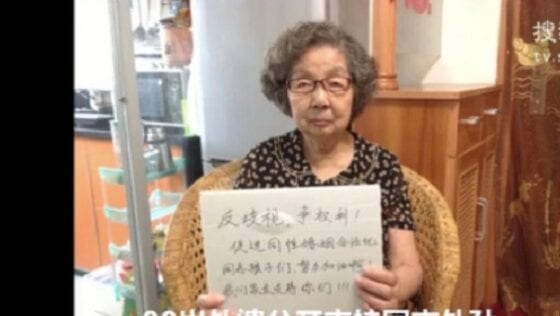 搜
tv.s
反歧视、争权利!
促进同性婚姻合法化,
同志孩子们,努力加油啊!
我们家长支持你们!!!